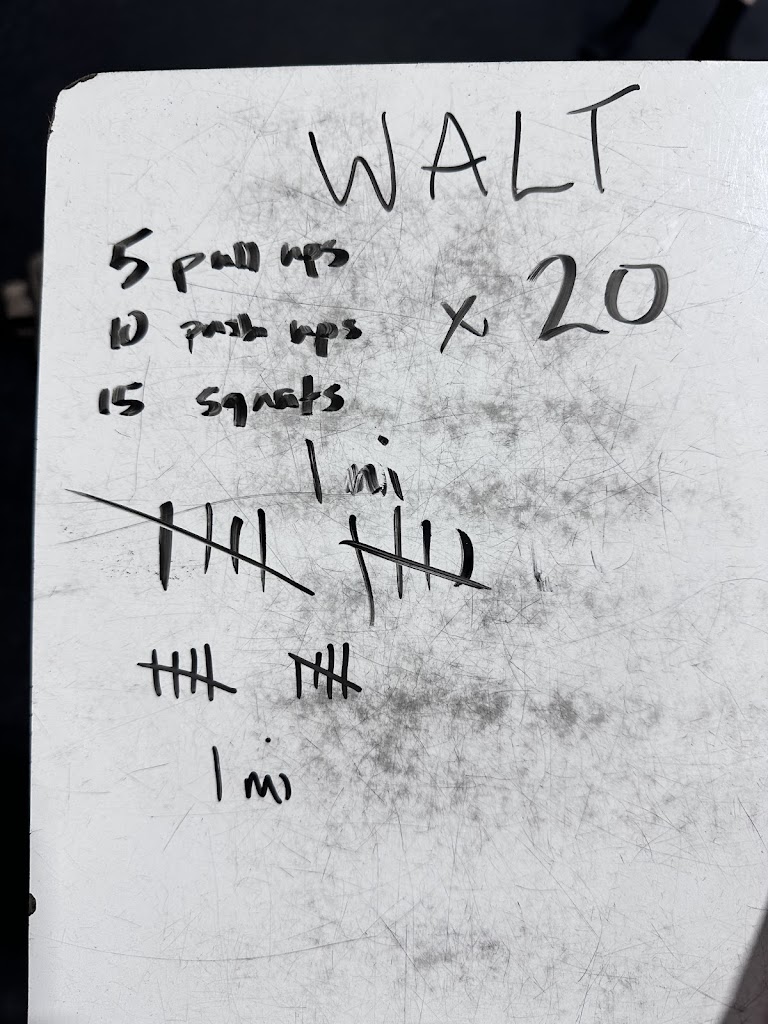 WALT
5 pull ups
10 push ups x 20
15 squats
1 mi
1 mi